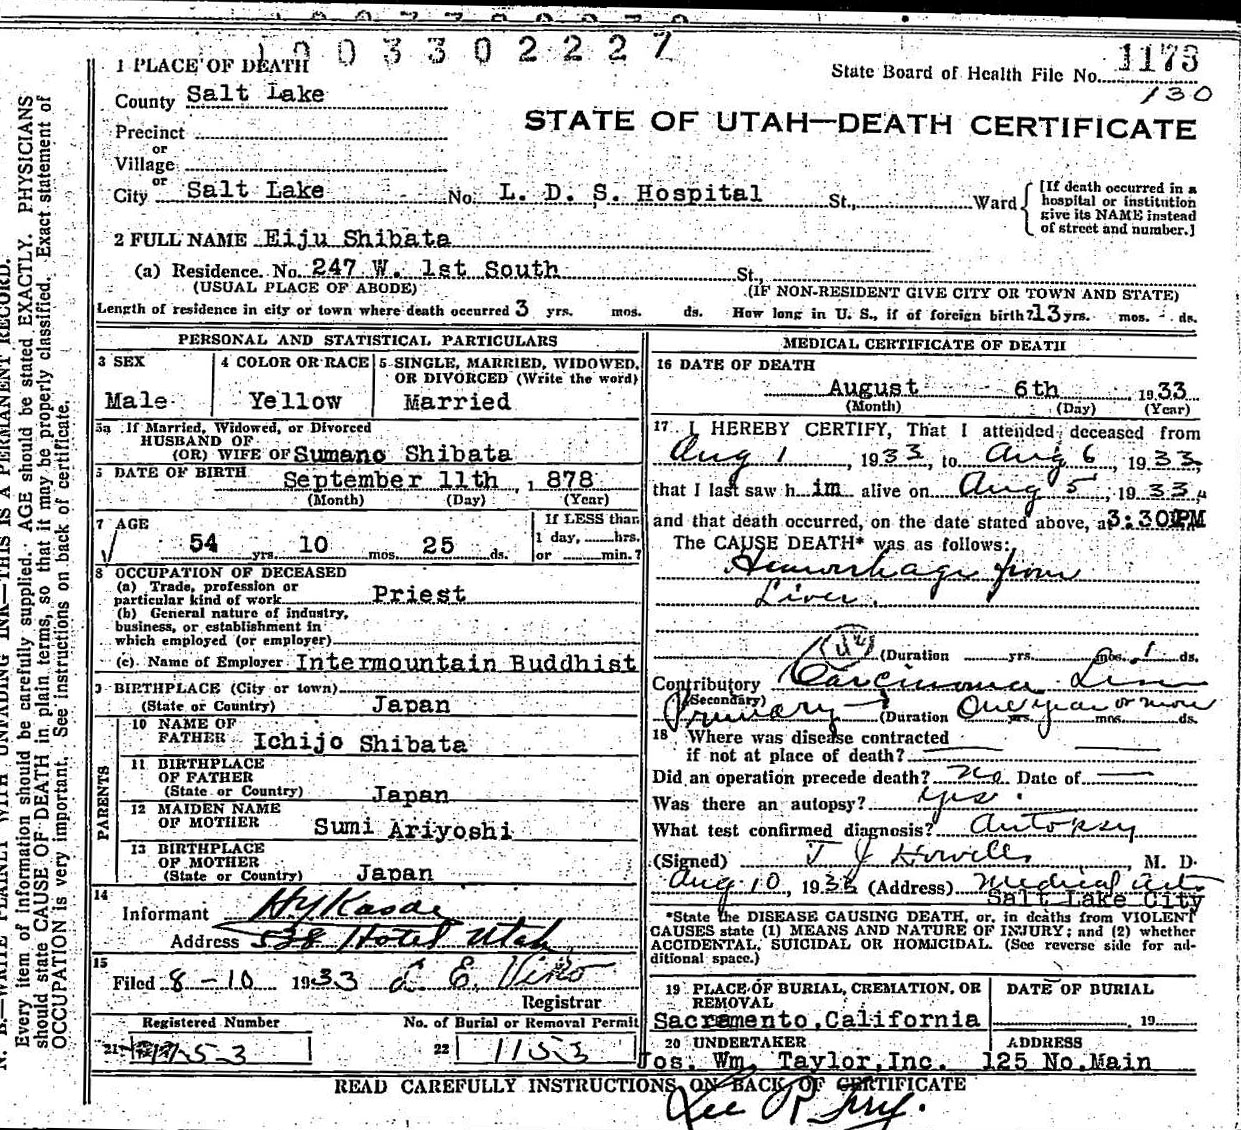 1003302227
1 PLACE OF DEATH
State Board of Health File No. 1173
130
County Salt Lake
STATE OF UTAH—DEATH CERTIFICATE
Precinct
or
Village
or
City Salt Lake No. L. D. S. Hospital St., Ward
[If death occurred in a
hospital or institution
give its NAME instead
of street and number.]
2 FULL NAME Eiju Shibata
(a) Residence. No. 247 W. 1st South St.,
(USUAL PLACE OF ABODE) (IF NON-RESIDENT GIVE CITY OR TOWN AND STATE)
Length of residence in city or town where death occurred 3 yrs. mos. ds. How long in U. S., if of foreign birth? 13 yrs. mos. - ds.
PERSONAL AND STATISTICAL PARTICULARS
3 SEX
Male
4 COLOR OR RACE
Yellow
5 SINGLE, MARRIED, WIDOWED,
OR DIVORCED (Write the word)
Married
5a If Married, Widowed, or Divorced
HUSBAND OF
(OR) WIFE OF Sumano Shibata
DATE OF BIRTH
September 11th, 1878
(Month) (Day) (Year)
7 AGE
54 yrs. 10 mos. 25 ds.
If LESS than
1 day, hrs.
or min.?
8 OCCUPATION OF DECEASED
(a) Trade, profession or
particular kind of work Priest
(b) General nature of industry,
business, or establishment in
which employed (or employer)
(c) Name of Employer Intermountain Buddhist
9 BIRTHPLACE (City or town)
(State or Country) Japan
PARENTS
10 NAME OF
FATHER Ichijo Shibata
11 BIRTHPLACE
OF FATHER
(State or Country) Japan
12 MAIDEN NAME
OF MOTHER Sumi Ariyoshi
13 BIRTHPLACE
OF MOTHER
(State or Country) Japan
14
Informant H Y Kasai
Address 538 Hotel Utah
15
Filed 8-10 1933
Registrar
Registered Number
21
No. of Burial or Removal Permit
22 1153
MEDICAL CERTIFICATE OF DEATH
16 DATE OF DEATH
August 6th 1933
(Month) (Day) (Year)
17 I HEREBY CERTIFY, That I attended deceased from
Aug 1, 1933, to Aug 6, 1933,
that I last saw him alive on Aug 5, 1933,
and that death occurred, on the date stated above, at 3:30 PM
The CAUSE DEATH* was as follows:
Hemorrhage from
Liver.
(Duration yrs. mos. 1 ds.
Contributory Carcinoma Liver
(Secondary)
Primary (Duration One year or more yrs. mos. ds.
18 Where was disease contracted
if not at place of death?
Did an operation precede death? No Date of
Was there an autopsy? yes.
What test confirmed diagnosis? Autopsy
(Signed) T J Howells, M. D.
Aug 10, 1933 (Address) Medical Arts
Salt Lake City
*State the DISEASE CAUSING DEATH, or, in deaths from VIOLENT
CAUSES state (1) MEANS AND NATURE OF INJURY; and (2) whether
ACCIDENTAL, SUICIDAL OR HOMICIDAL. (See reverse side for ad-
ditional space.)
19 PLACE OF BURIAL, CREMATION, OR
REMOVAL
Sacramento, California
DATE OF BURIAL
, 19
20 UNDERTAKER
Jos. Wm. Taylor, Inc.
ADDRESS
125 No. Main
READ CAREFULLY INSTRUCTIONS ON BACK OF CERTIFICATE
N. B.—WRITE PLAINLY WITH UNFADING INK—THIS IS A PERMANENT RECORD.
Every item of information should be carefully supplied. AGE should be stated EXACTLY. PHYSICIANS
should state CAUSE OF DEATH in plain terms, so that it may be properly classified. Exact statement of
OCCUPATION is very important. See instructions on back of certificate.